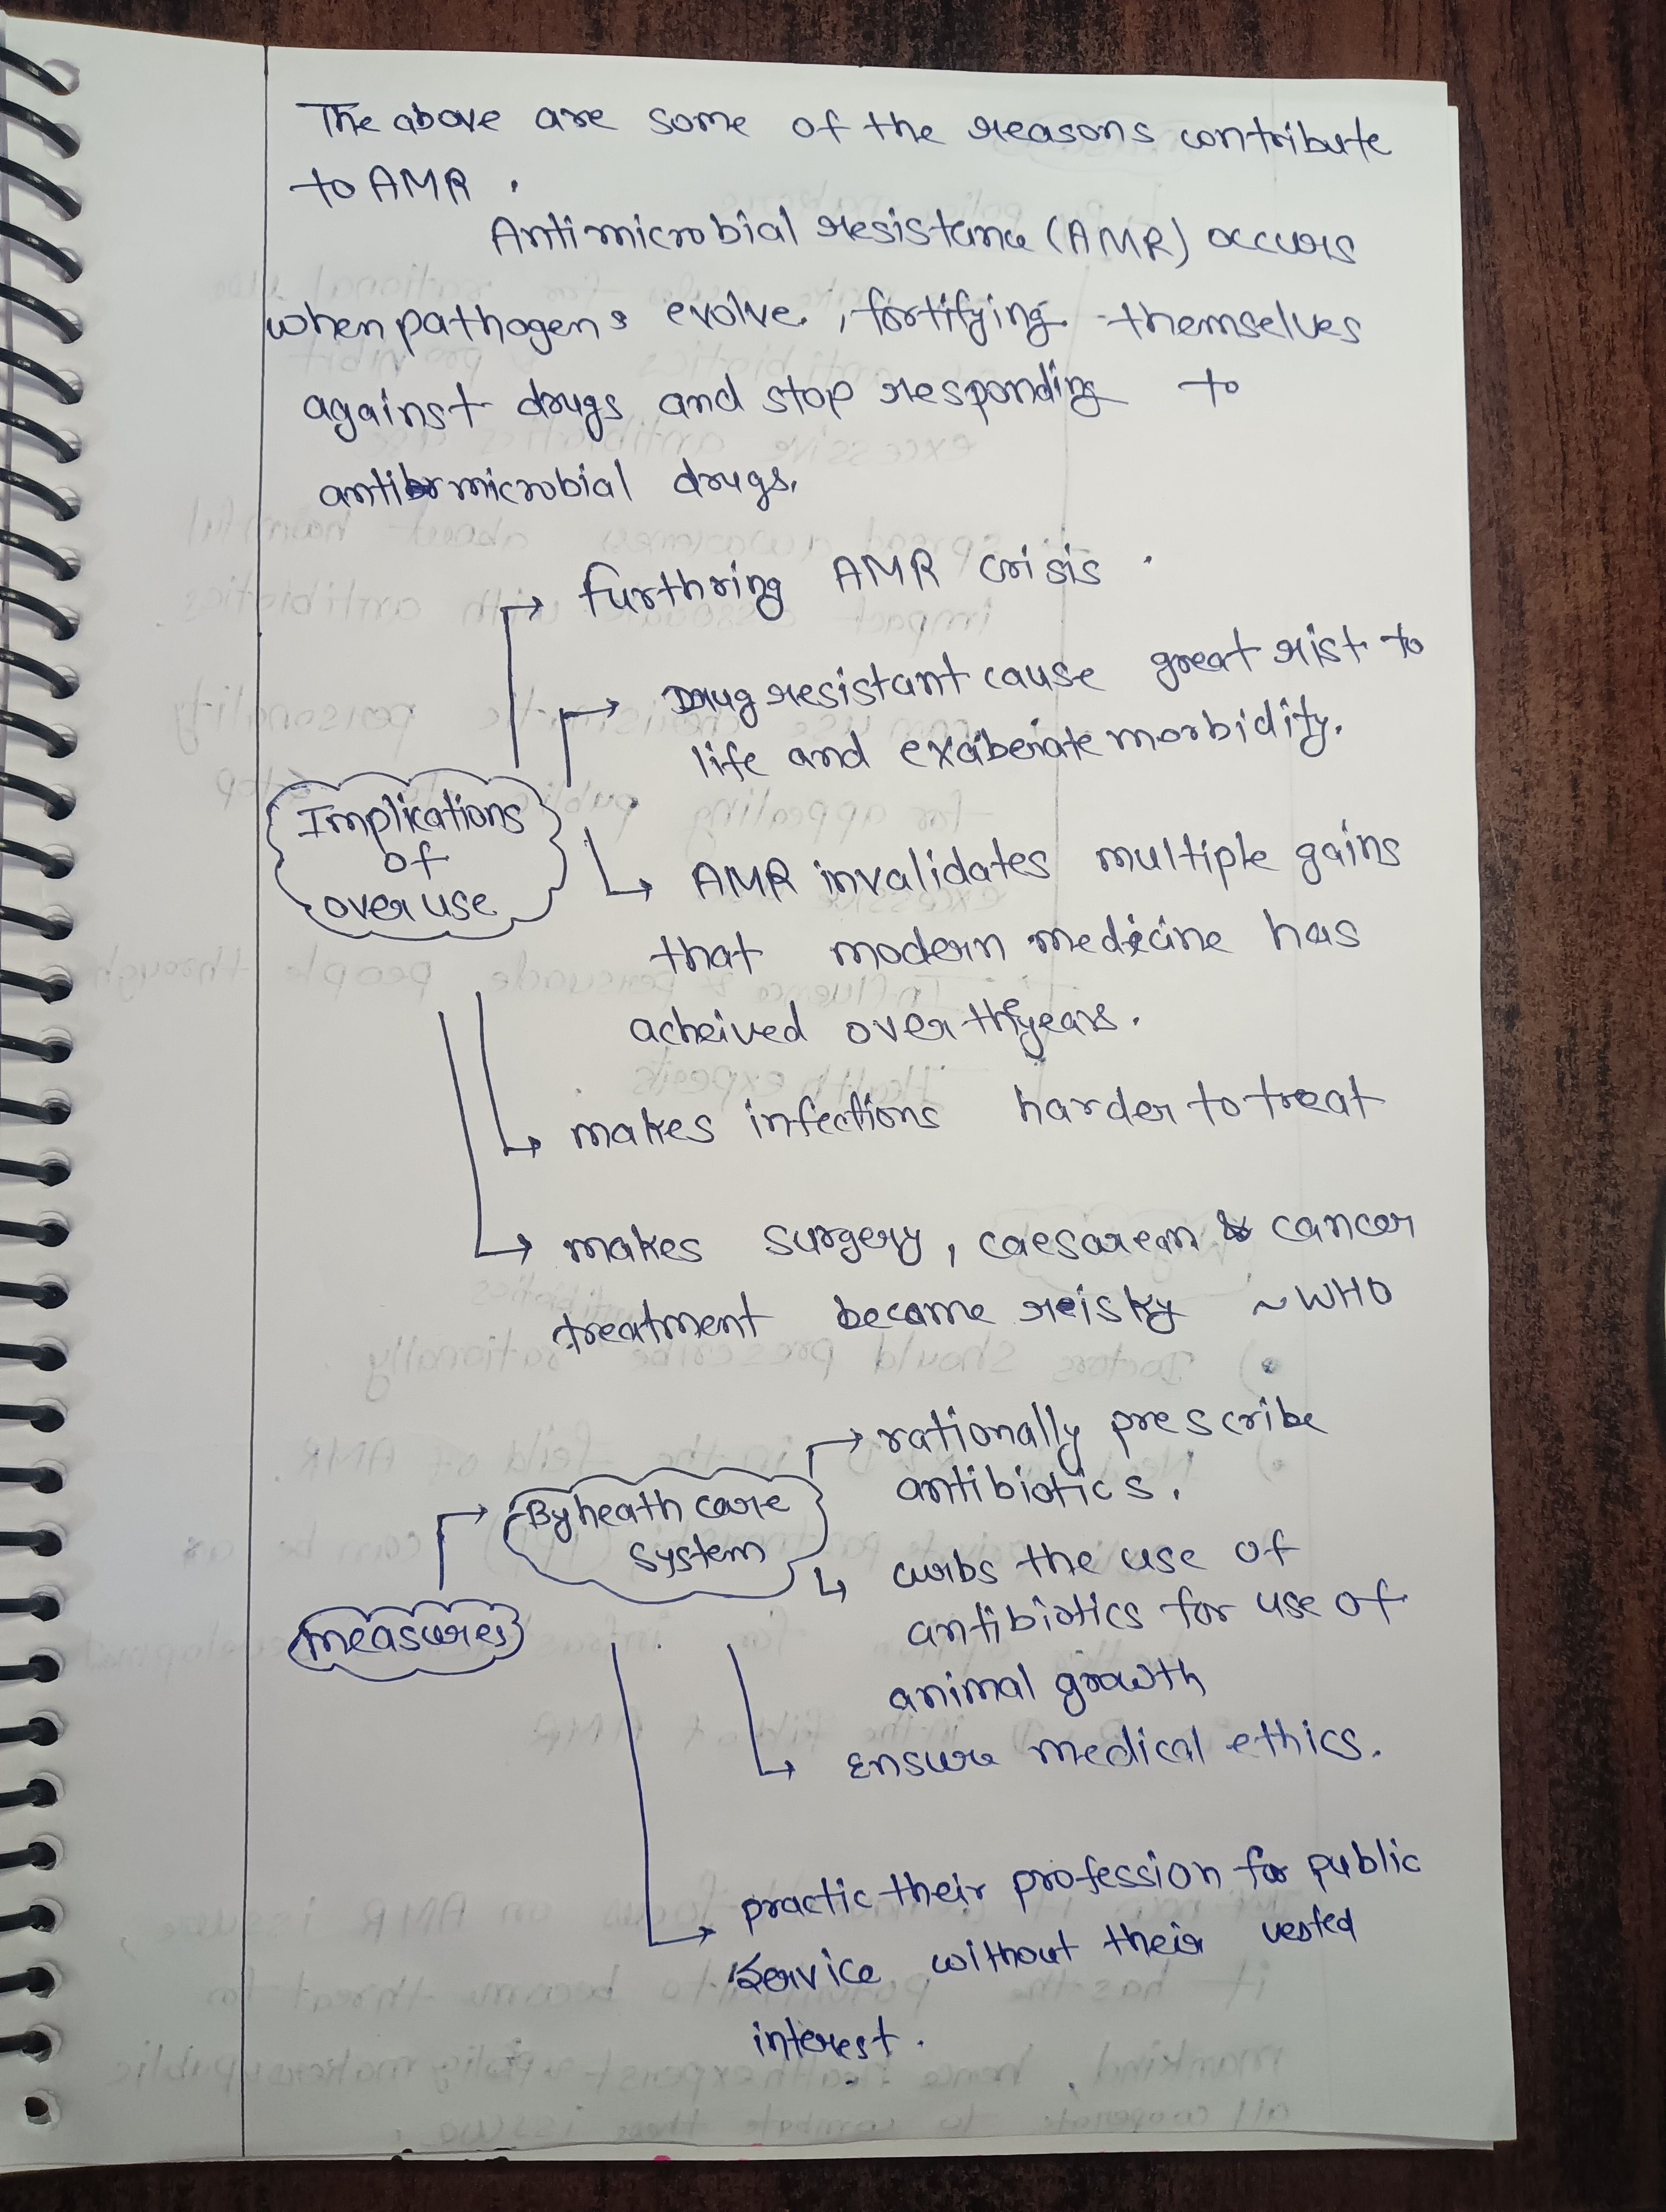 The above are some of the reasons contribute
to AMR.
Antimicrobial resistance (AMR) occurs
when pathogens evolve, fortifying themselves
against drugs and stop responding to
antimicrobial drugs.
furthring AMR crisis.
Drug resistant cause great rist to
life and exaberate morbidity.
Implications
of
over use
AMR invalidates multiple gains
that modern medicine has
acheived over the years.
makes infections harder to treat
makes surgery, caesarean & cancer
treatment become reisky ~WHO
rationally prescribe
antibiotics.
By heath care
system
curbs the use of
antibiotics for use of
animal growth
measures
Ensure medical ethics.
practic their profession for public
service without their vested
interest.